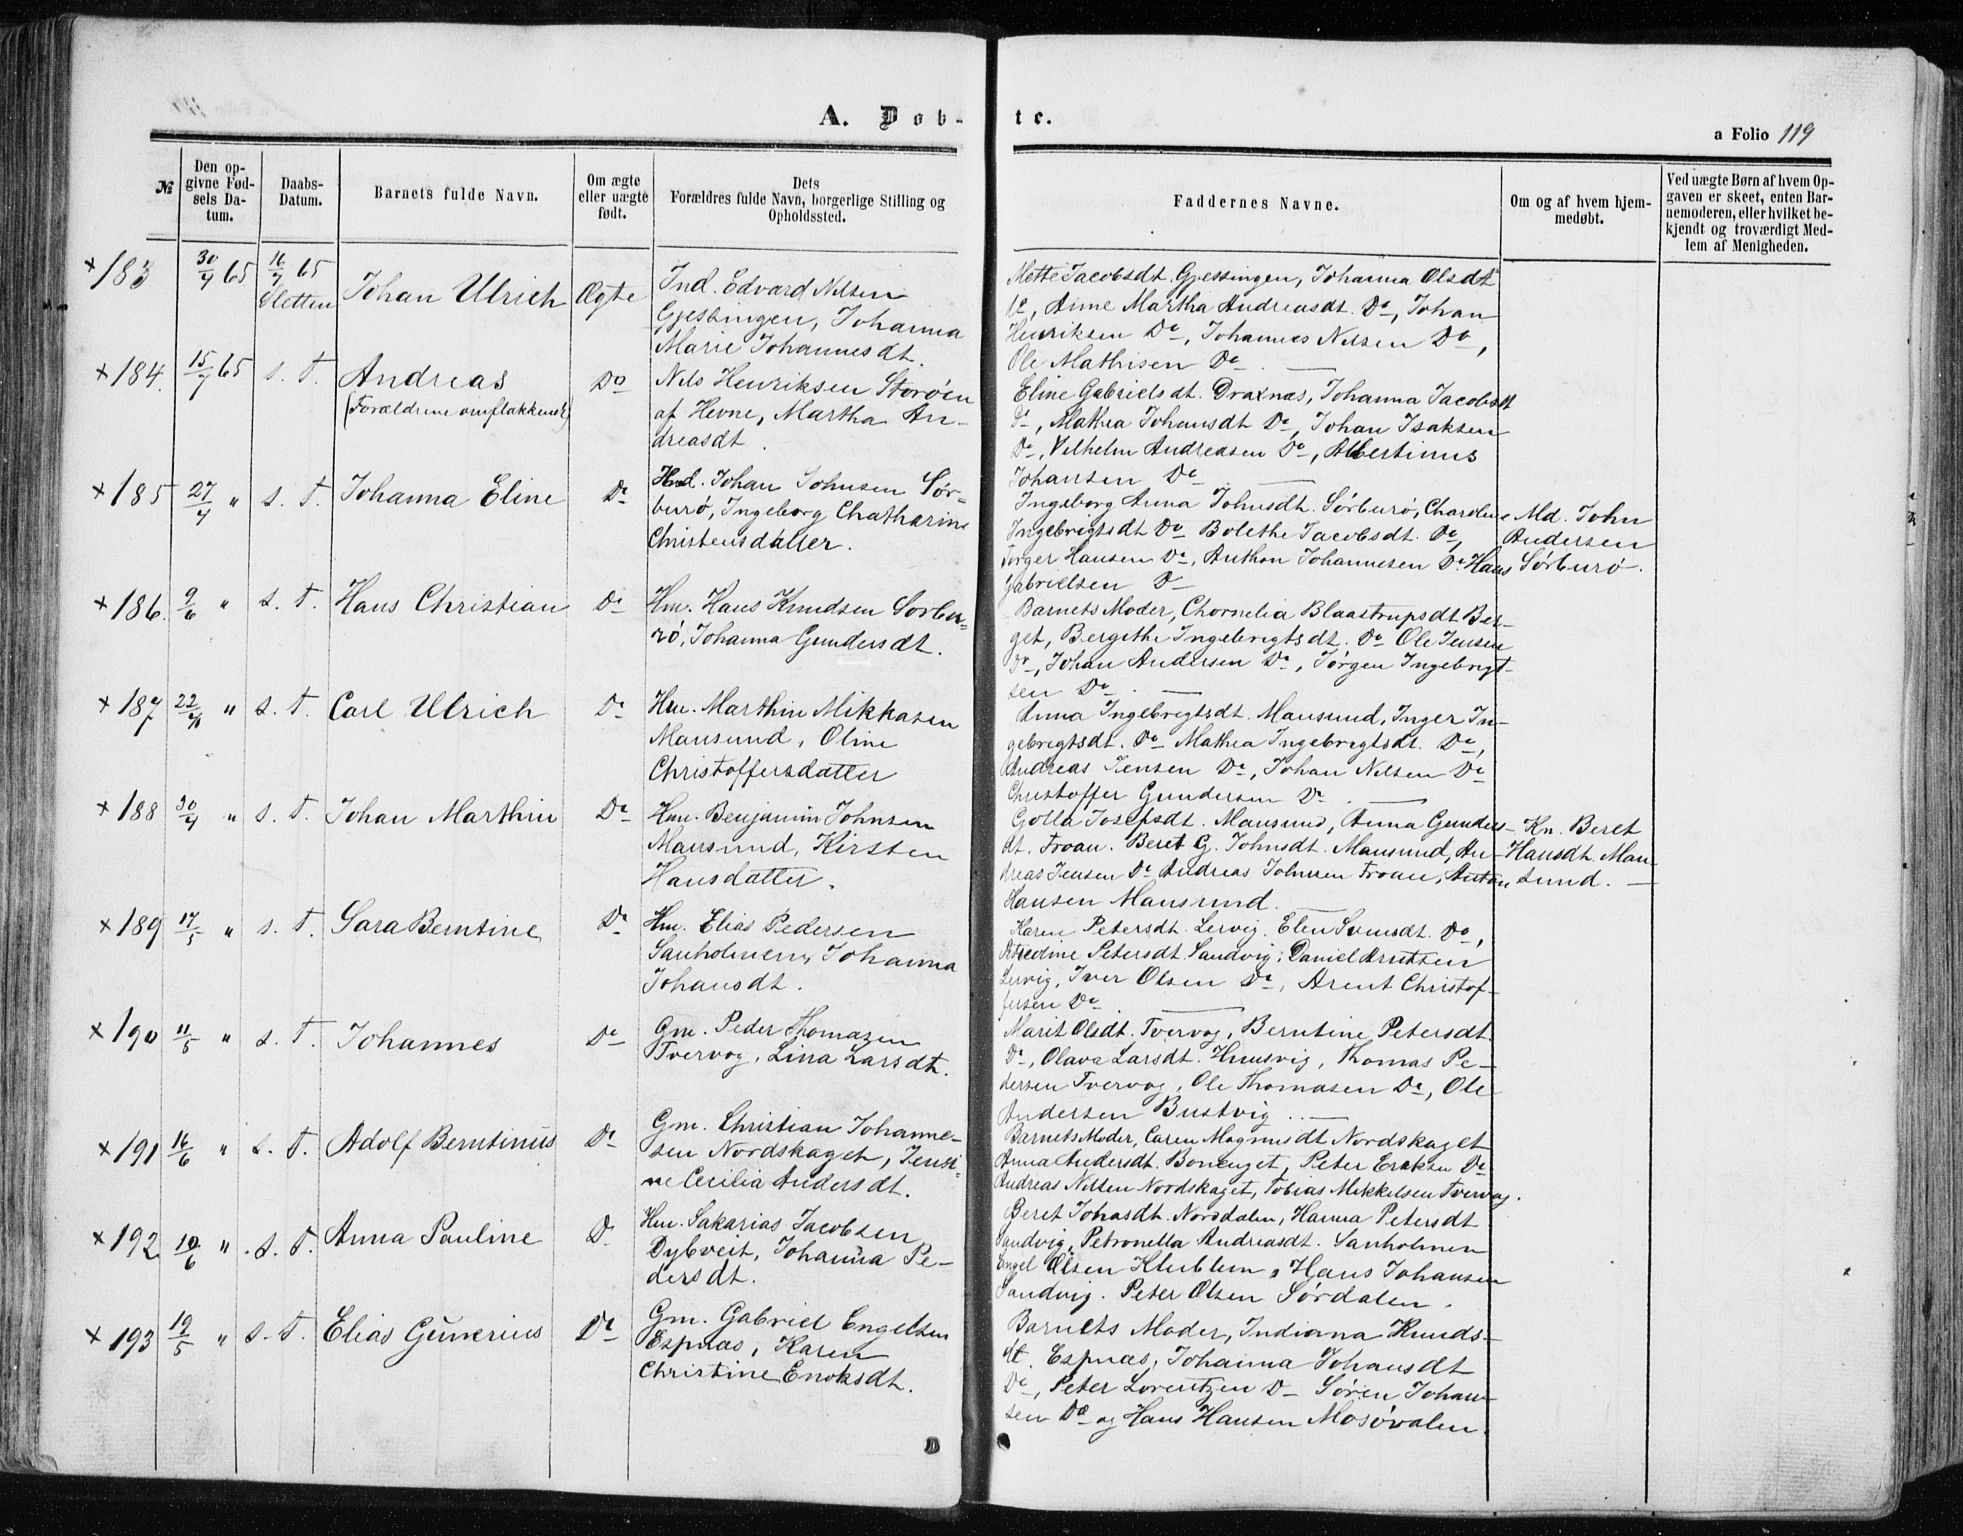 A. Døb-
te.
a Folio 119
№
Den op-
givne Fød-
sels Da-
tum.
Daabs-
Datum.
Barnets fulde Navn.
Om ægte
eller uægte
født.
Dets
Forældres fulde Navn, borgerlige Stilling og
Opholdssted.
Faddernes Navne.
Om og af hvem hjem-
medøbt.
Ved uægte Børn af hvem Op-
gaven er skeet, enten Bar-
nemoderen, eller hvilket be-
kjendt og troværdigt Med-
lem af Menigheden.
× 183 30/4 65 16/7 65
Sletten
Johan Ulrich
Ægte
Ind. Edvard Nilsen
Gjessingen, Johanna
Marie Johannesdt.
Mette Jacobsdt. Gjessingen, Johanna Olsdt
Dº, Anne Martha Andreasdt. Dº, Johan
Henriksen Dº, Johannes Nilsen Dº,
Ole Mathisen Dº
× 184. 15/7 65 s. T. Andreas
(Forældrene omflakkende)
Dº
Nils Henriksen Storøen
af Hevne, Martha An-
dreasdt.
Eline Gabrielsdt. Draxnæs, Johanna Jacobsdt
Dº, Mathea Johansdt Dº, Johan Isaksen
Dº, Vilhelm Andreasen Dº, Albertinus
Johansen Dº
× 185 27/4 " s. T. Johanna Eline
Dº
Ind. Johan Johnsen Sør-
burø, Ingeborg Chatharine
Christensdatter.
Ingeborg Anna Johnsdt. Sørburø, Charoline
Ingebrigtsdt Dº Bolethe Jacobsdt. Dº,
Torger Hansen Dº, Anthon Johannesen Dº. Hans
Gabrielsen D
Md. John
Andersen
Sørburø.
× 186. 9/6 " s. T. Hans Christian
Dº
Hm. Hans Knudsen Sorbu-
rø, Johanna Gundersdt.
Barnets Moder, Chornelia Blaastrupsdt Ber-
get, Bergithe Ingebrigtsdt. Dº Ole Jensen
Dº, Johan Andersen Dº, Jørgen Ingebrigt-
sen Dº.
× 187 22/4 " s. T. Carl Ulrich
Dº
Hm. Marthin Mikkalsen
Mausund, Oline
Christoffersdatter
Anna Ingebrigtsdt. Mausund, Inger In-
gebrigtsdt. Dº Mathea Ingebrigtsdt. Dº,
Andreas Jensen Dº, Johan Nilsen Dº
Christoffer Gundersen Dº.
× 188 30/4 " s. T. Johan Marthin
Dº
Hm. Benjamin Johnsen
Mausund, Kirsten
Hansdatter.
Golla Josepsdt. Mausund, Anna Gunders-
dt. Froan. Beret G. Johnsdt. Mausund, An-
dreas Jensen Dº Andreas Johnsen Froan, Anton
Hansen Mausund.
Kn. Beret
Hansdt. Mau-
sund.
× 189 17/5 " s. T. Sara Berntine
Dº
Hm. Elias Pedersen
Sanholmen, Johanna
Johansdt.
Karen Petersdt. Lervig. Elen Svensdt. Dº,
Petersdt. Sandvig; Daniel Arntsen
Lervig, Iver Olsen Dº, Arent Christof-
fersen Dº.
× 190 11/5 " s. T. Johannes
Dº
Gm. Peder Thomasen
Tvervog, Lina Larsdt.
Marit Olsdt. Tvervog, Berntine Petersdt.
Dº, Olava Larsdt. Hmusvig, Thomas Pe-
dersen Tvervog, Ole Thomasen Dº, Ole
Andersen Bustvig.
× 191 16/6 " s. T. Adolf Berntinus
Dº
Gm. Christian Johanne-
sen Nordskaget, Jensi-
ne Cecilia Andersdt.
Barnets Moder, Caren Magnusdt Nordskaget
Anna Andersdt. Bonenget, Peter Eriksen Dº
Andreas Nilsen Nordskaget, Tobias Mikkelsen Tvervog.
× 192 10/6 " s. T. Anna Pauline
D.
Hm. Sakarias Jacobsen
Dybveit, Johanna Pe-
dersdt.
Beret Johasdt. Norddalen, Hanna Petersdt
Sandvig, Petronella Andreasdt. Sanholmen
Engel Olsen Klublum, Hans Johansen
Sandvig. Peter Olsen Sørdalen.
× 193 19/5 " s. T. Elias Gunerius
Dº
Gm. Gabriel Engelsen
Espnæs, Karen
Christine Enoksdt.
Barnets Moder, Indiana Knuds-
dt. Espnæs, Johanna Johansdt
Dº, Peter Lorentzen D Søren Johan-
sen Dº og Hans Hansen Mosøvalen.